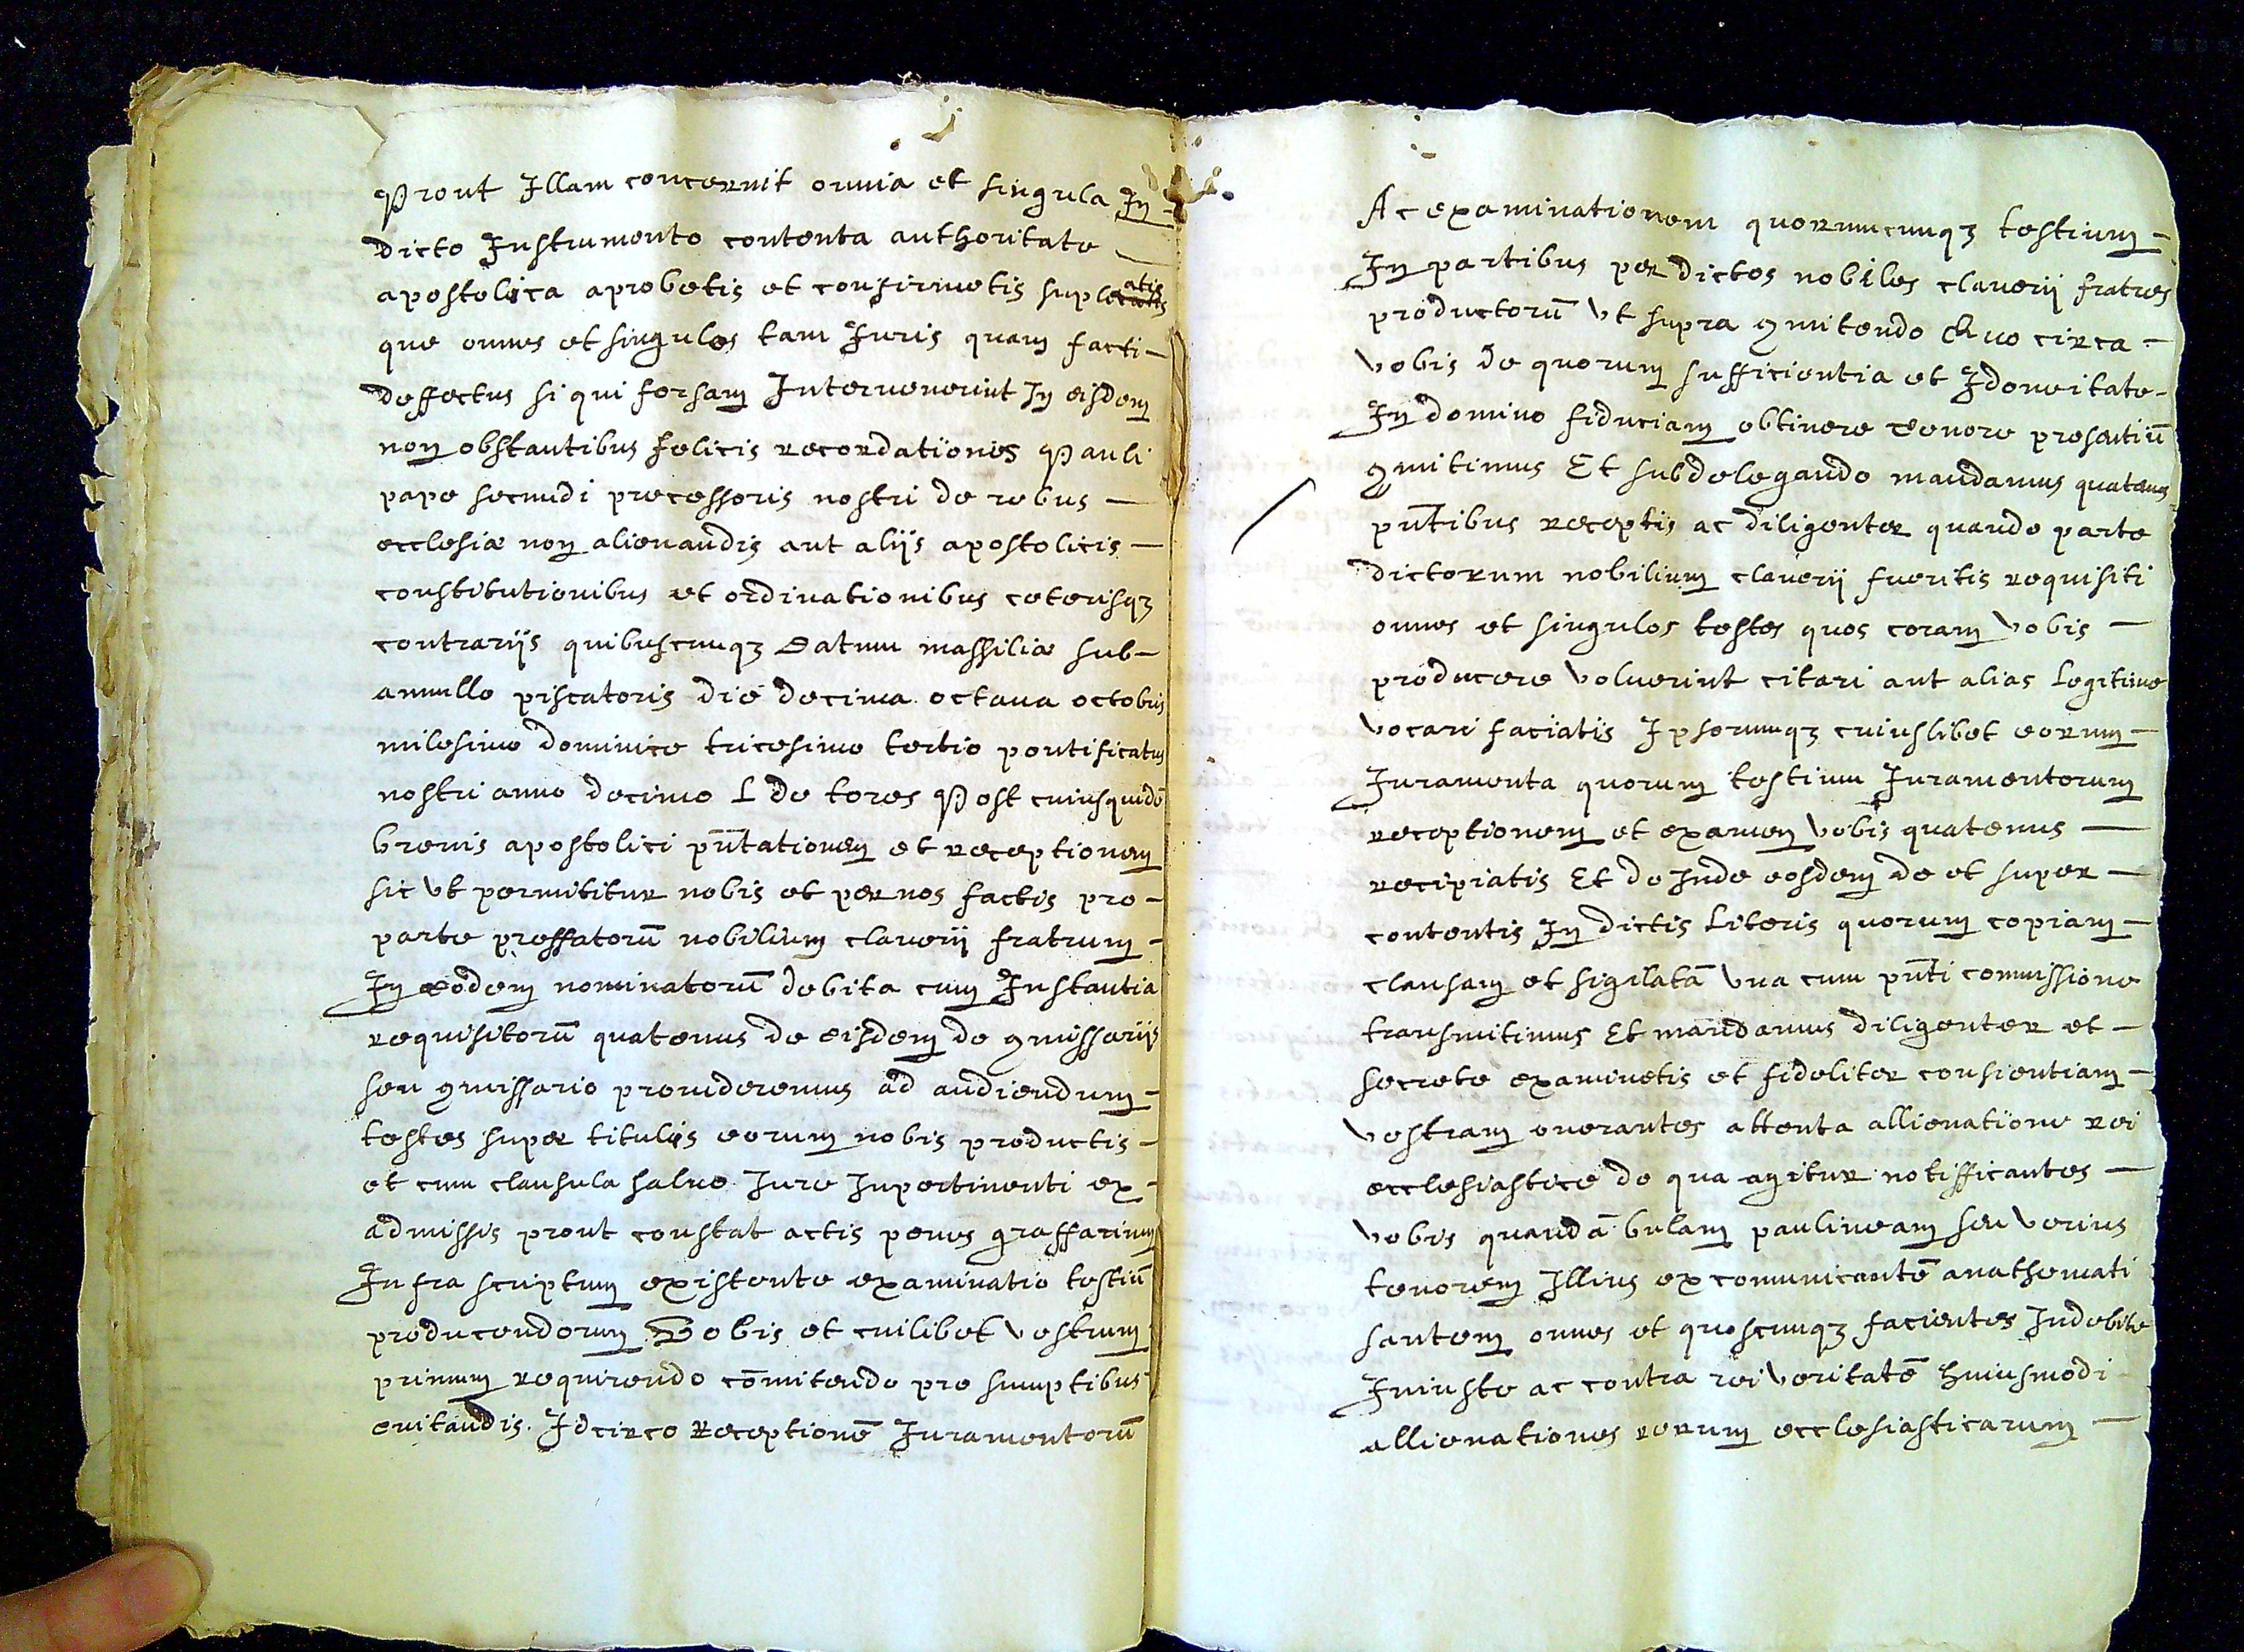 Prout Illam concernit omnia et singula In
dicto Instrumento contenta authoritate
apostolica aprobetis et confirmetis supleatis
que omnes et singulos tam Iuris quam facti
deffectus si qui forsam Intervenerint In eisdem
non obstantibus felicis recordationis Pauli
pape secundi precessoris nostri de rebus
ecclesiæ non alienandis aut aliis apostolicis
constitutionibus et ordinationibus ceterisqз
contrariis quibuscunqз Datum massiliæ sub
annullo piscatoris die decima octava octobris
milesimo dominice tricesimo tertio pontificatus
nostri anno decimo L de tores Post cuiusquidē
brevis apostolici pñtationem et receptionem
sic vt permititur nobis et per nos factis pro
parte preffatorū nobilium claverii fratrum
In eodem nominatorū debita cum Instantia
requisitorū quatenus de eisdem de ꝯmissariis
seu ꝯmissario provideremus ad audiendum
testes super titulis eorum nobis productis
et cum clausula salvo Iure Inpertinenti ex
admissis prout constat actis penes graffarium
Infra scriptum existente examinatio testiū
producendorum Vobis et cuilibet vestrum
primum requirendo cōmitendo pro sumptibus
evitandis. Idcirco Receptionē Iuramentorū
Ac examinationem quorumcunqз testium
In partibus per dictos nobiles claverii fratres
productorū vt supra ꝯmitendo Quo circa
vobis de quorum sufficientia et Idoneitate
In domino fiduciam obtinere tenore presentiū
ꝯmitimus Et subdelegando mandamus quatenus
pñtibus receptis ac diligenter quando parte
dictorum nobilium claverii fueritis requisiti
omnes et singulos testes quos coram vobis
producere voluerint citari aut alias legitime
vocari faciatis Ipsorumqз cuiuslibet eorum
Iuramenta quorum testium Iuramentorum
receptionem et examen vobis quatenus
recipiatis Et de Inde eosdem de et super
contentis In dictis literis quorum copiam
clausam et sigilatā vna cum pñti commissione
transmitimus Et mandamus diligenter et
secrete examinetis et fideliter consientiam
vestram onerantes attenta allienatione rei
ecclesiastice de qua agitur notifficantes
vobis quandā bulam paulineam seu verius
tenorem Illius excomunicantē anathemati
santem omnes et quoscunqз facientes Indebite
Iniuste ac contra rei veritatē huiusmodi
allienationes rerum ecclesiasticarum